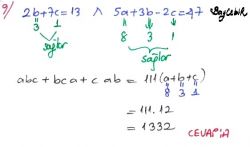 9) 2b+7c=13 ∧ 5a+3b-2c=47
3 1 8 3 1
saptar saptar
abc + bca + c ab = 111(a+b+c)
8 3 1
= 111.12
= 1332
CEVAP: A